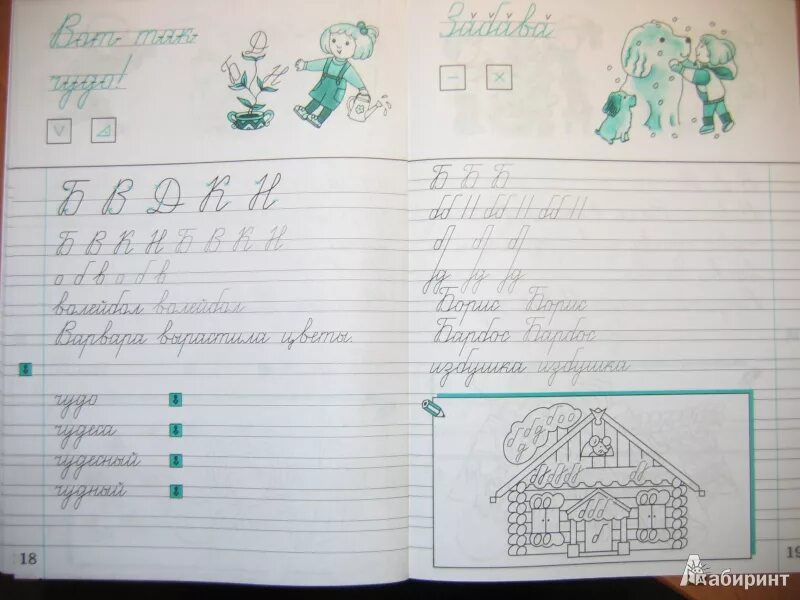 Вот так
чудо!
Б Д К Н
Б В Д К Н
Б В К Н Б В К Н
о б в о б в
волейбол волейбол
Варвара вырастила цветы.
чудо
чудеса
чудесный
чудный
18
Забава
Б Б Б
Борис Борис
Барбос Барбос
избушка избушка
19
Лабиринт